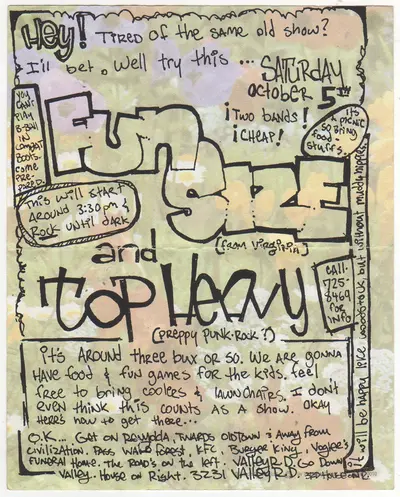 Hey! Tired of the same old show?
I'll bet. Well try this...
Saturday
October 5th
¡Two bands!
¡Cheap!
it's
a picnic
so bring
food &
stuffs.
You
can't
play
B-Ball
in
combat
boots.
come
pre-
pared.
Fun
Size
[from Virginia]
This will start
around 3:30 pm &
Rock until dark
and
Top Heavy
(preppy punk-rock?)
call
725-
8469
for
info
it will be happy like woodstock, but without muddy hippies.
it's around three bux or so. We are gonna
have food & fun games for the kids. feel
free to bring coolers & lawn chairs. I don't
even think this counts as a show. Okay
Here's how to get there...
O.K.... Get on Reynolda, towards oldtown & away from
civilization. Pass Wake Forest, KFC, Burger King, Vogler's
Funeral Home. The Road's on the left. Valley R.D. Go Down
Valley. House on Right. 3231 Valley R.D. 3rd House on R.